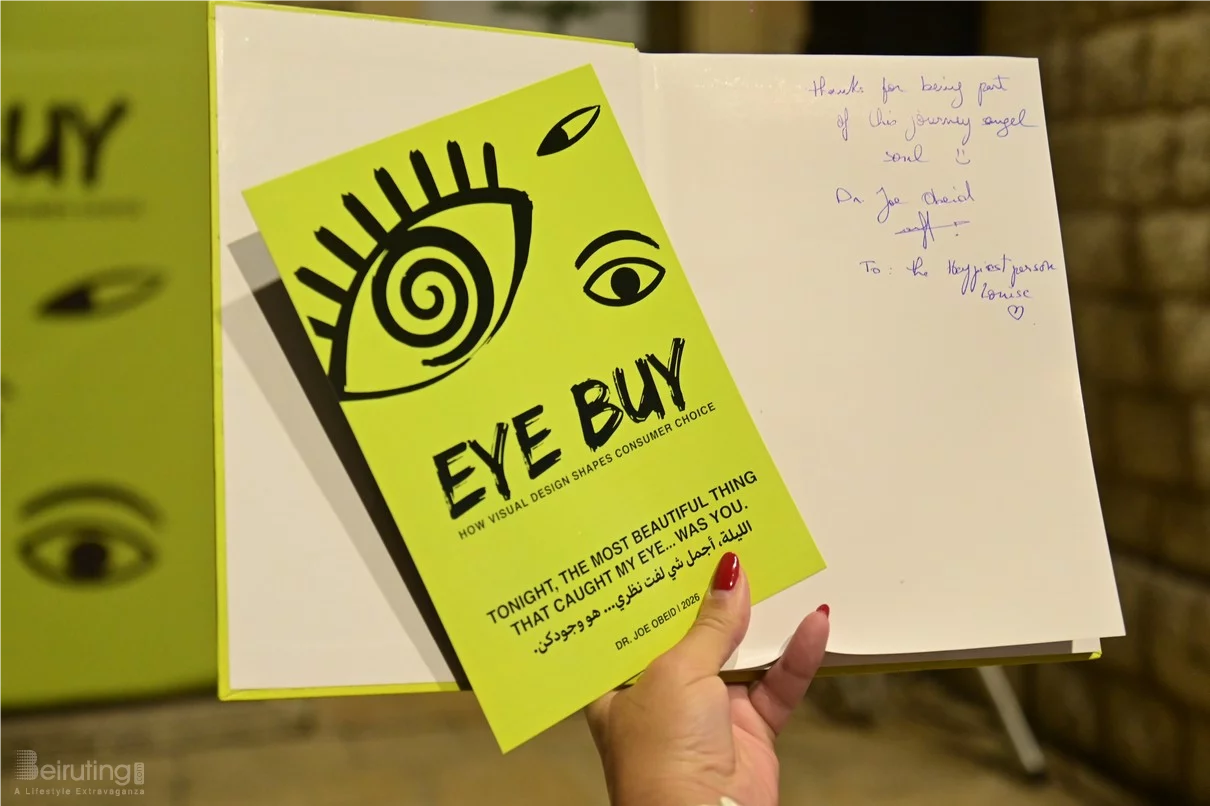 BUY
thanks for being part
of this journey angel
soul
Dr. Joe Obeid
To: the Happiest person
Louise
EYE BUY
HOW VISUAL DESIGN SHAPES CONSUMER CHOICE
TONIGHT, THE MOST BEAUTIFUL THING
THAT CAUGHT MY EYE... WAS YOU.
الليلة، أجمل شي لفت نظري... هو وجودكن.
DR. JOE OBEID | 2026
Beiruting
A Lifestyle Extravaganza